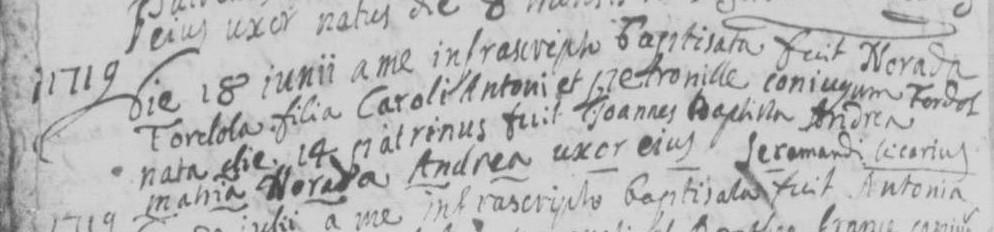 eius uxor natus die 8 mensis
1719 Die 18 iunii a me infrascripto baptisata fuit Norada
Torelola filia Caroli Antoni et Petronille coniugum Tordol
nata die 14 patrinus fuit Joannes Baptista Andrea
matria Norada Andrea uxor eius Jeramandi vicarius
1719 iulii a me infrascripto baptisata fuit Antonia